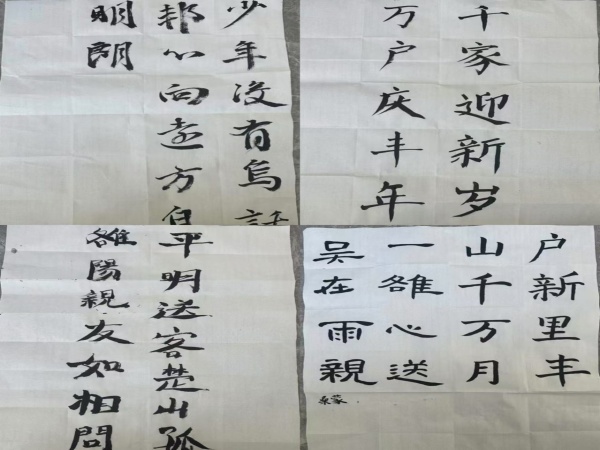 少年没有烏
邦心向遠方自
明朗
千家迎新岁
万户庆丰年
平明送客楚山孤
雒陽親友如相問
户新里丰
山千万月
一雒心送
吴在雨親